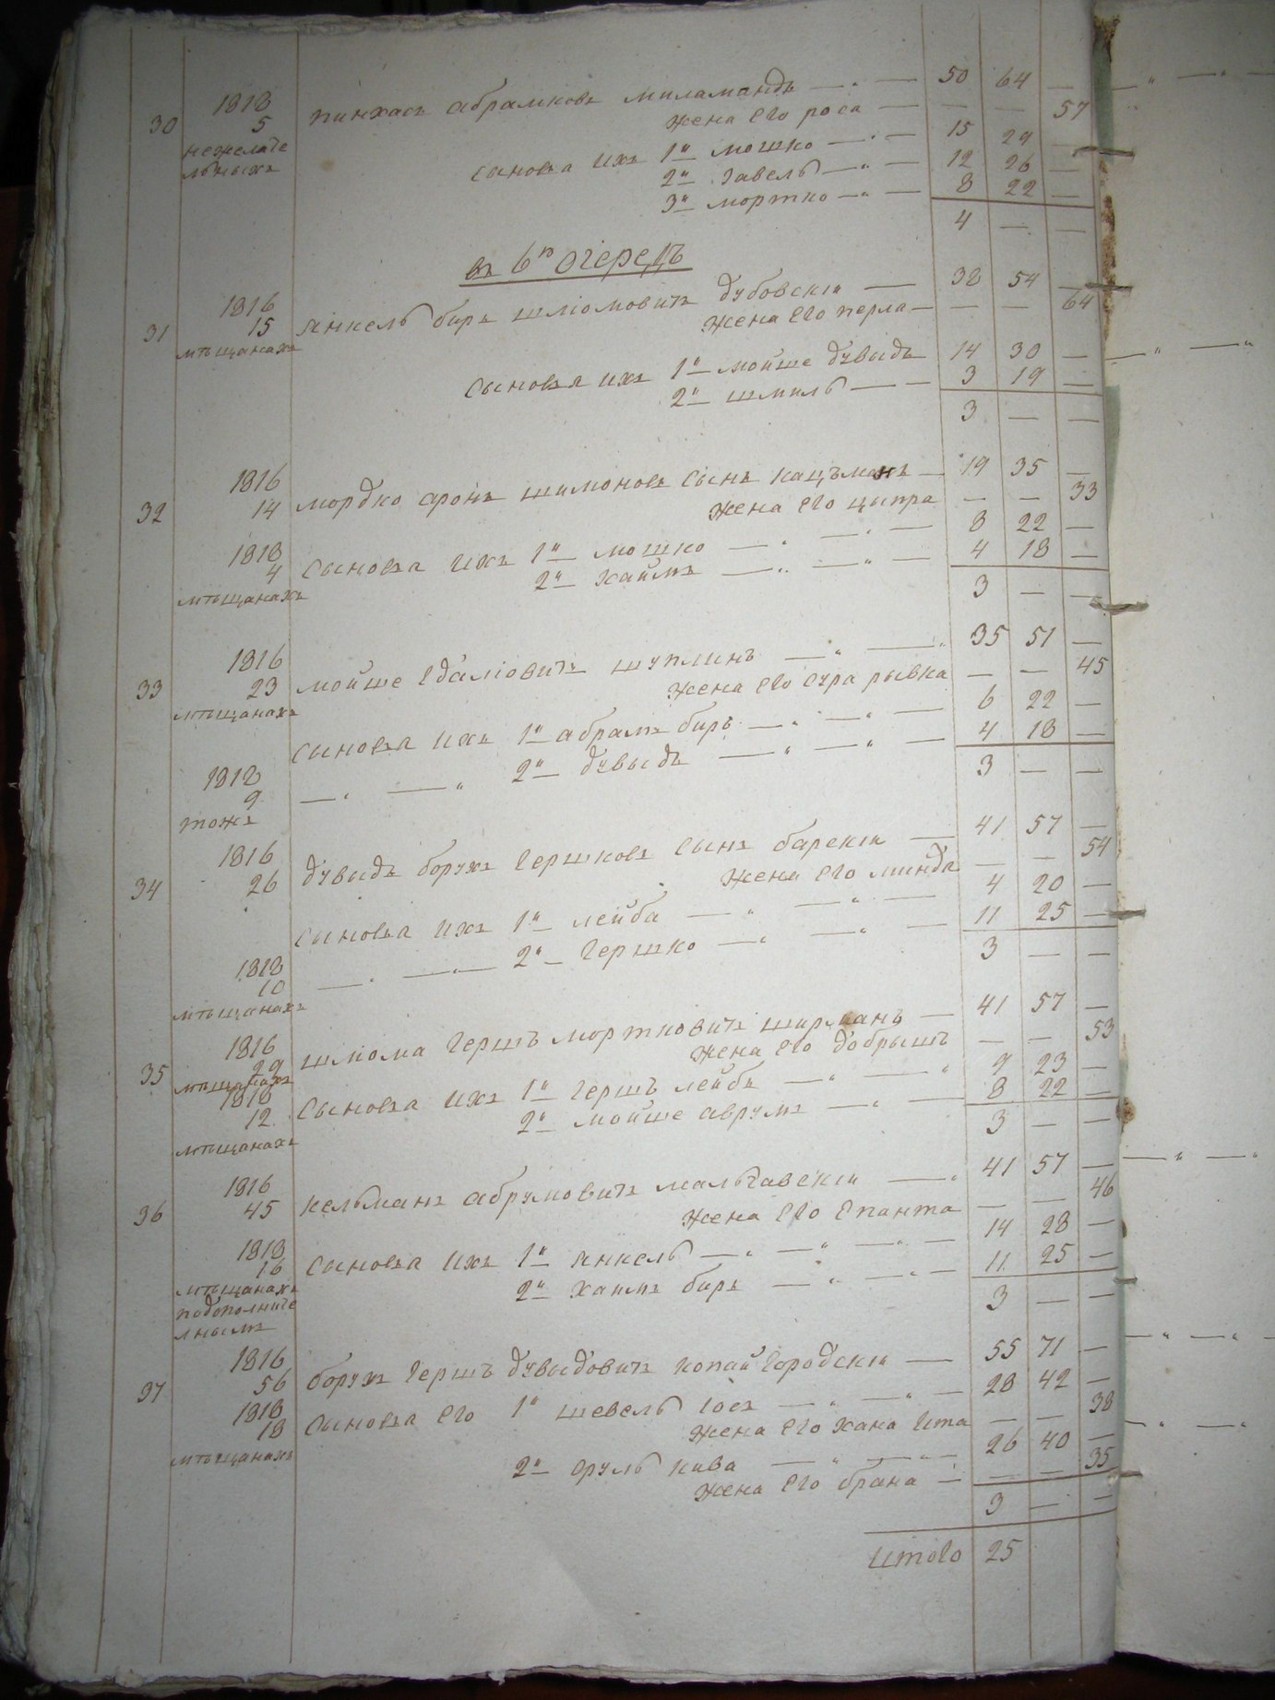 30 1818 5 Пинхасъ Абрамковъ Миламандъ — 50 64 —
нежелате льныхъ Жена его Роса — — — 57
Сыновья ихъ 1й Мошко — 15 29
2й Завель — 12 26 —
3й Мортко — 8 22 —
4 — —
въ 6ю очередь
31 1816 15 Янкель Биръ Шліомовичъ Дубовскій — 38 54 —
мѣщанахъ Жена его Перла — — — 64
Сыновья ихъ 1й Мойше Дувыдъ 14 30 —
2й Шмиль — 3 19 —
3 — —
32 1816 14 Мордко Аронъ Шимоновъ сынъ Кацъманъ — 19 35 —
Жена его Ципра — — 33
1818 4 Сыновья ихъ 1й Мошко — 8 22 —
мѣщанахъ 2й Хаимъ — 4 18 —
3 — —
33 1816 23 Мойше Едаліовичъ Шуплинъ — 35 51 —
мѣщанахъ Жена его Сура Рывка — — 45
Сыновья ихъ 1й Абрамъ Биръ — 6 22 —
1818 9 — 2й Дувыдъ — 4 18 —
тожъ 3 — —
34 1816 26 Дувыдъ Борухъ Гершковъ сынъ Барскій — 41 57 —
Жена его Миндля — — 54
Сыновья ихъ 1й Лейба — 4 20 —
1818 10 — 2й Гершко — 11 25 —
мѣщанахъ 3 — —
35 1816 29 Шліома Гершъ Мортковичъ Ширманъ — 41 57 —
мѣщанахъ Жена его Добрышъ — — 53
1818 12 Сыновья ихъ 1й Гершъ Лейбъ — 9 23 —
2й Мойше Аврумъ — 8 22 —
мѣщанахъ 3 — —
36 1816 45 Кельманъ Абрумовичъ Мальчавскій — 41 57 —
Жена его Епанта — — 46
1818 16 Сыновья ихъ 1й Янкель — 14 28 —
мѣщанахъ 2й Хаимъ Биръ — 11 25 —
подополните льнымъ 3 — —
37 1816 56 Борухъ Гершъ Дувыдовичъ Копайгородскій — 55 71 —
1818 18 Сыновья его 1й Шевель Іосъ — 28 42 —
Жена его Хана Ита — — 38
мѣщанахъ 2й Сруль Кива — 26 40 —
Жена его Брана — — — 35
3 — —
Итого 25